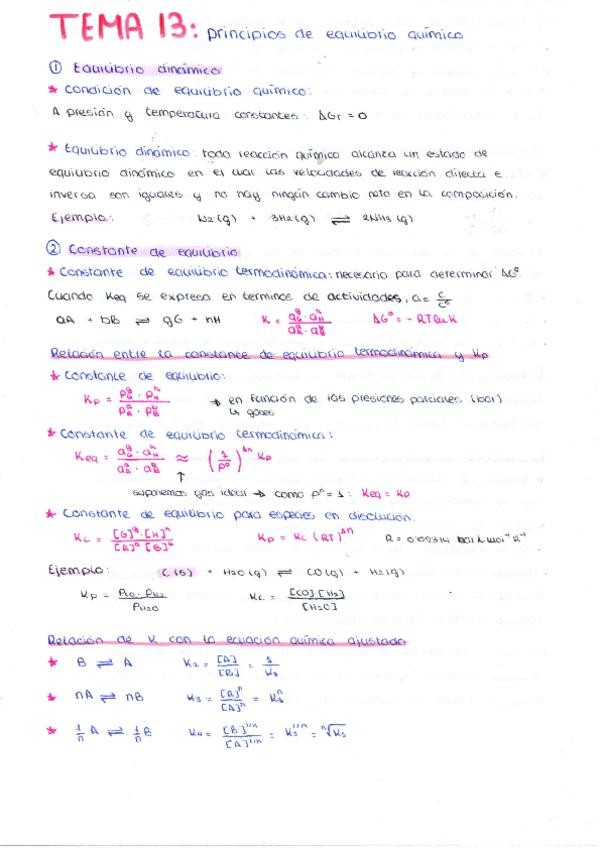 TEMA 13: principios de equilibrio químico
① Equilibrio dinámico
* Condición de equilibrio químico:
A presión y temperatura constantes: ΔGr = 0
* Equilibrio dinámico: toda reacción química alcanza un estado de
equilibrio dinámico en el cual las velocidades de reacción directa e
inversa son iguales y no hay ningún cambio neto en la composición.
Ejemplo: N2(g) + 3H2(g) ⇌ 2NH3(g)
② Constante de equilibrio
* Constante de equilibrio termodinámica: necesario para determinar ΔG°.
Cuando Keq se expresa en terminos de actividades, a = c/c°
aA + bB ⇌ gG + hH K = (a_G^g · a_H^h)/(a_A^a · a_B^b) ΔG° = - RT ln K
Relación entre la constante de equilibrio termodinámica y Kp
* Constante de equilibrio:
Kp = (P_G^g · P_H^h)/(P_A^a · P_B^b) → en función de las presiones parciales (bar)
↳ gases
* Constante de equilibrio termodinámica:
Keq = (a_G^g · a_H^h)/(a_A^a · a_B^b) ≈ (1/P°)^Δn Kp
↑
suponemos gas ideal → como P° = 1: Keq = Kp
* Constante de equilibrio para especies en disolución.
Kc = ([G]^g · [H]^h)/([A]^a [B]^b) Kp = Kc (RT)^Δn R = 0'08314 bar L mol⁻¹ K⁻¹
Ejemplo: C(s) + H2O(g) ⇌ CO(g) + H2(g)
Kp = (P_CO · P_H2)/P_H2O Kc = ([CO]·[H2])/[H2O]
Relación de K con la ecuación química ajustada
* B ⇌ A K2 = [A]/[B] = 1/K1
* nA ⇌ nB K3 = [B]^n/[A]^n = K1^n
* 1/n A ⇌ 1/n B K4 = [B]^1/n/[A]^1/n = K1^1/n = ⁿ√K1